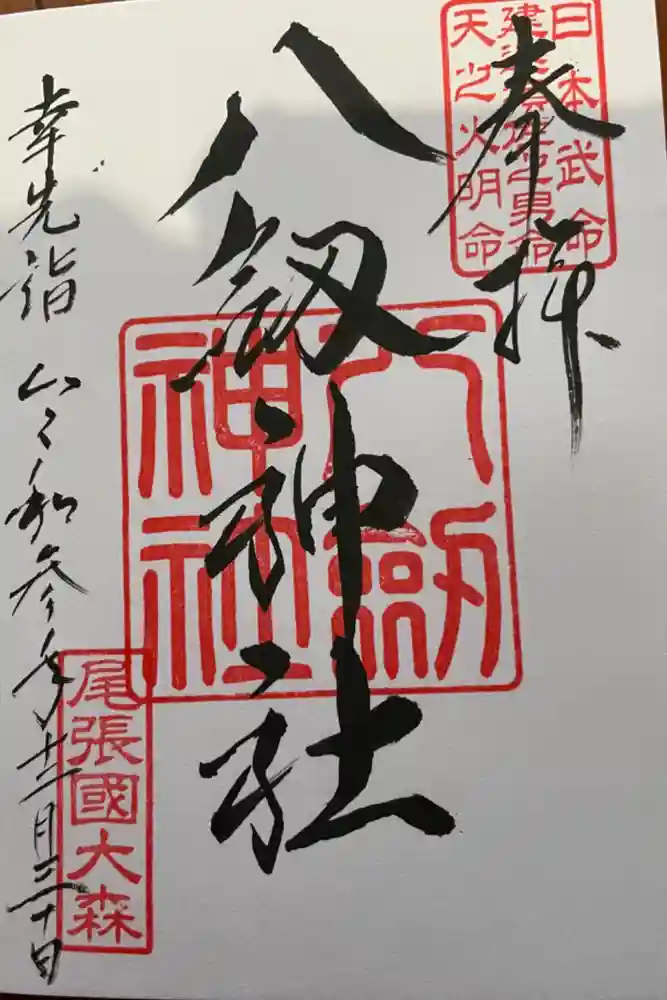 奉拝
日本武命
建速須佐之男命
天之火明命
八釼神社
八劔
神社
幸先詣 令和参年十二月三十日
尾張國大森